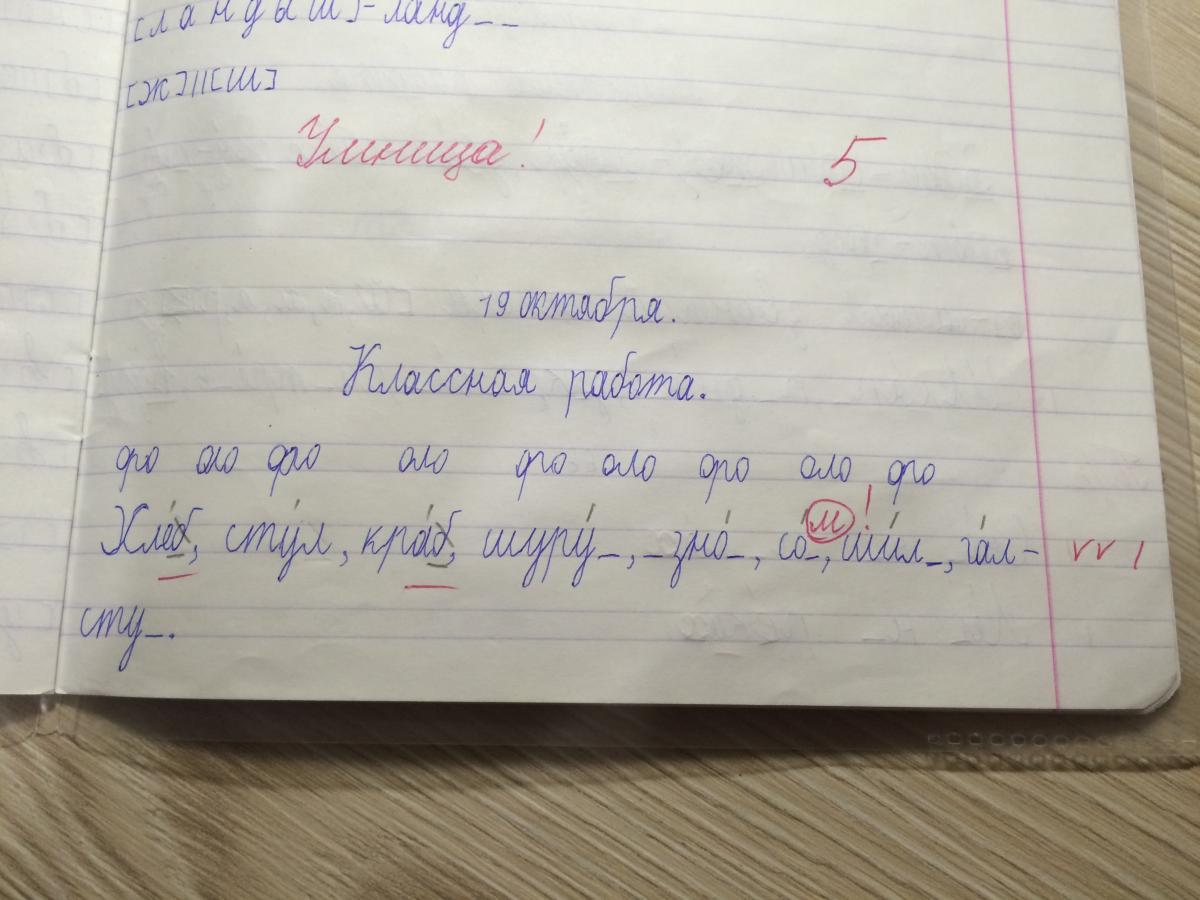 [ландыш]-ланд_ _
[ж]||[ш]
Умница! 5
19 октября.
Классная работа.
фо оло фло оло фо оло фо оло фо
Хлеб, стул, краб, шуру_, _зно_, со_, м! шил_, гал-
сту_.